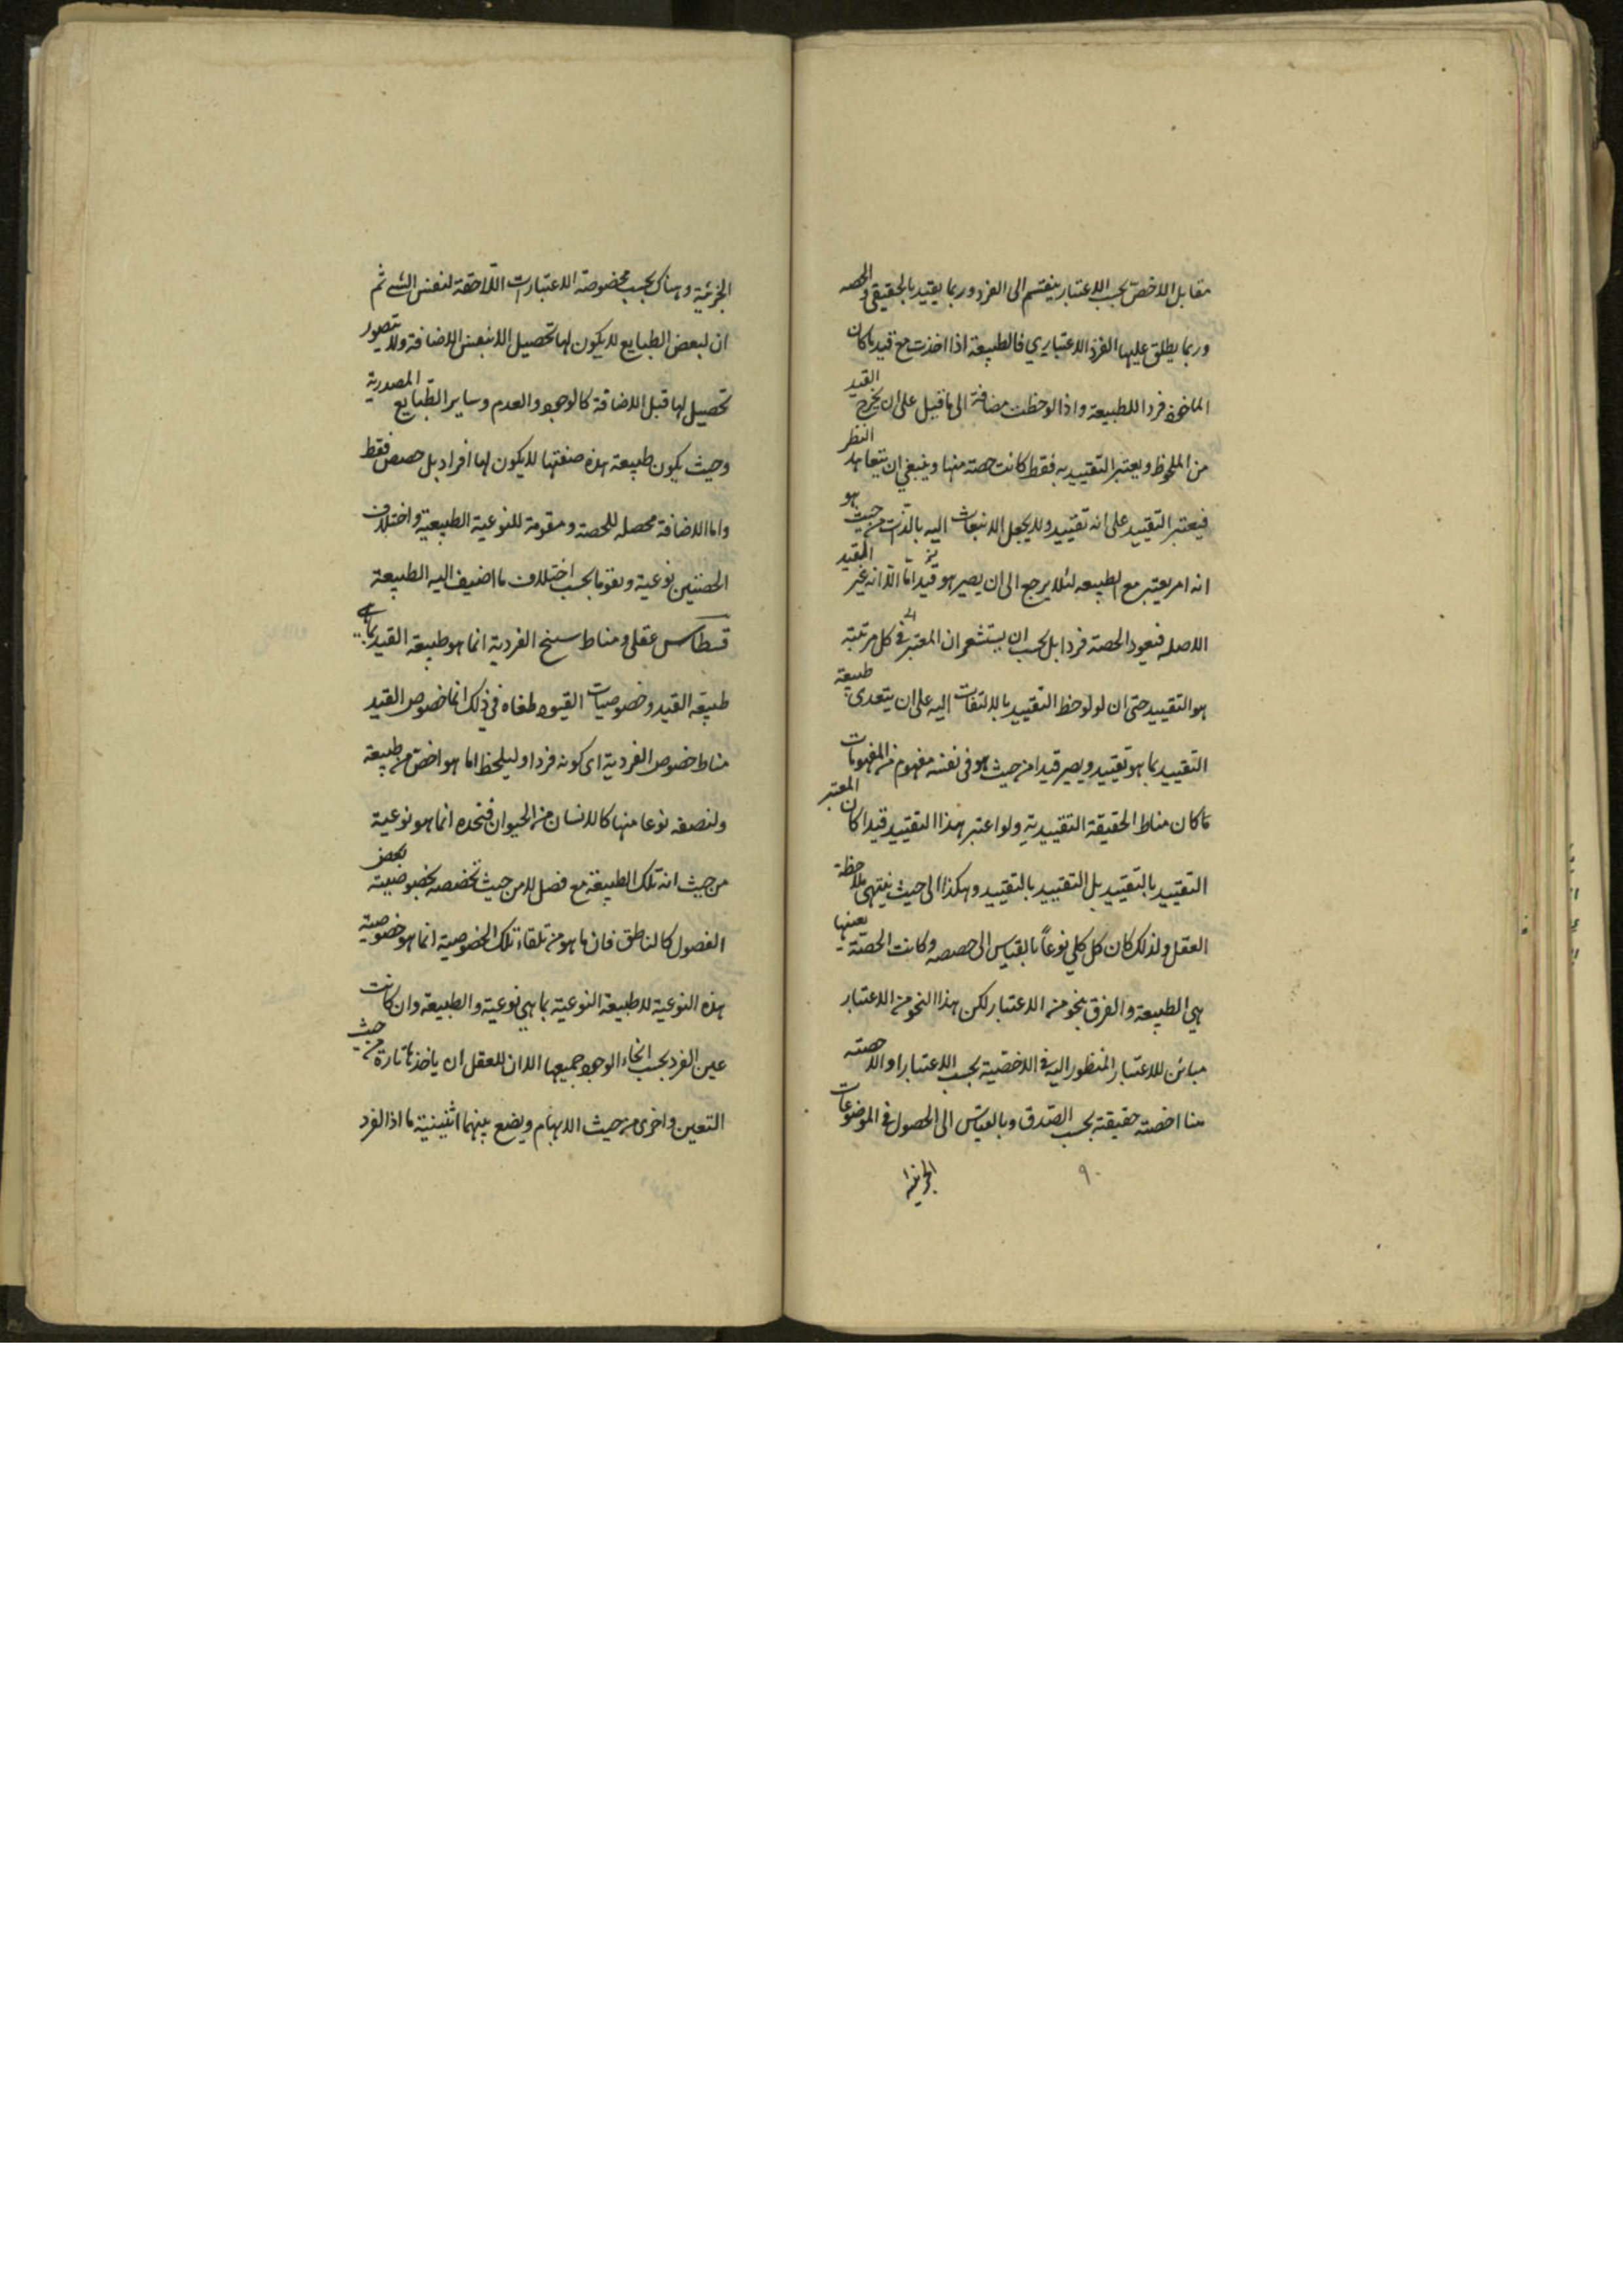 مقابل الاخص بحسب الاعتبار ينقسم الى الفرد وربما يقيد بالحقيقي والحصه
وربما يطلق عليها الفرد الاعتباري فالطبيعة اذا اخذت مع قيد ما كان
الماخوذ فردا للطبيعة واذا لوحظت مضافة الى ما قبل على ان يخرج القيد
من الملحوظ ويعتبر التقييد به فقط كانت حصة منها وينبغي ان يتعاهد النظر
فيعتبر التقييد على انه تقييد ولا يجعل الانبعاث اليه بالذات من حيث هو
انه امر يعتبر مع الطبيعه لئلا يرجع الى ان يصير هو قيدا ما الا انه غير المقيد
الاصله فيعود الحصة فردا بل يحسب ان يستشعر ان المعتبر في كل مرتبة
هو التقييد حتى ان لو لوحظ التقييد بالالتفات اليه على ان يتعدى طبيعة
التقييد بما هو تقييد ويصير قيدا من حيث هو في نفسه مفهوم من المفهومات
ما كان مناط الحقيقة التقييدية ولو اعتبر هذا التقييد قيدا كان المعتبر
التقييد بالتقييد بل التقييد بالتقييد وهكذا الى حيث ينتهي ملاحظة
العقل ولذلك كان كل كلي نوعاً بالقياس الى حصصه وكانت الحصة بعينها
هي الطبيعة والفرق بنحو من الاعتبار لكن هذا النحو من الاعتبار
مبائن للاعتبار المنظور اليه في الاخصية بحسب الاعتبار او الاحصته
هنا اخصته حقيقة بحسب الصدق وبالقياس الى الحصول في الموضوعات
٩٠
الجزئية
الجزئية وهناك بحسب مخصوصة الاعتبارات اللاحقة لنفس الشي ثم
ان لبعض الطبايع لا يكون لها تحصيل الا بنفس الاضافة ولا يتصور
تحصيل لها قبل الاضافة كالوجود والعدم وساير الطبايع المصدرية
وحيث يكون طبيعة هذه صنعتها لا يكون لها افراد بل حصص فقط
واما الاضافة محصله للحصة ومقومة للنوعية الطبيعية واختلاف
الحصتين نوعية وتقوما بحسب اختلاف ما اضيف اليه الطبيعة
قسطاس عقلي ومناط سنخ الفردية انما هو طبيعة القيد بما هي
طبيعة القيد وخصوصيات القيود ملغاه في ذلك انما خصوص القيد
مناط خصوص الفردية اى كونه فردا وليلحظ اما هو اخص من طبيعة
ولنصفه نوعا منها كالانسان من الحيوان فتحده انما هو نوعية
من حيث انه تلك الطبيعة مع فصل لا من حيث تخصصه بخصوصية بعض
الفصول كالناطق فان ما هو من تلقاء تلك الخصوصية انما هو خصوصية
هذه النوعية لا طبيعة النوعية بما هي نوعية والطبيعة وان كانت
عين الفرد بحسب انحاء الوجود جميعها الا ان للعقل ان ياخذها تارة من حيث
التعين واخرى من حيث الابهام ويضع بينهما اثنينية ما اذ الفرد